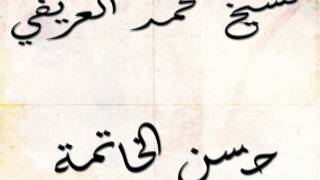 الشيخ محمد العريفي
حسن الخاتمة